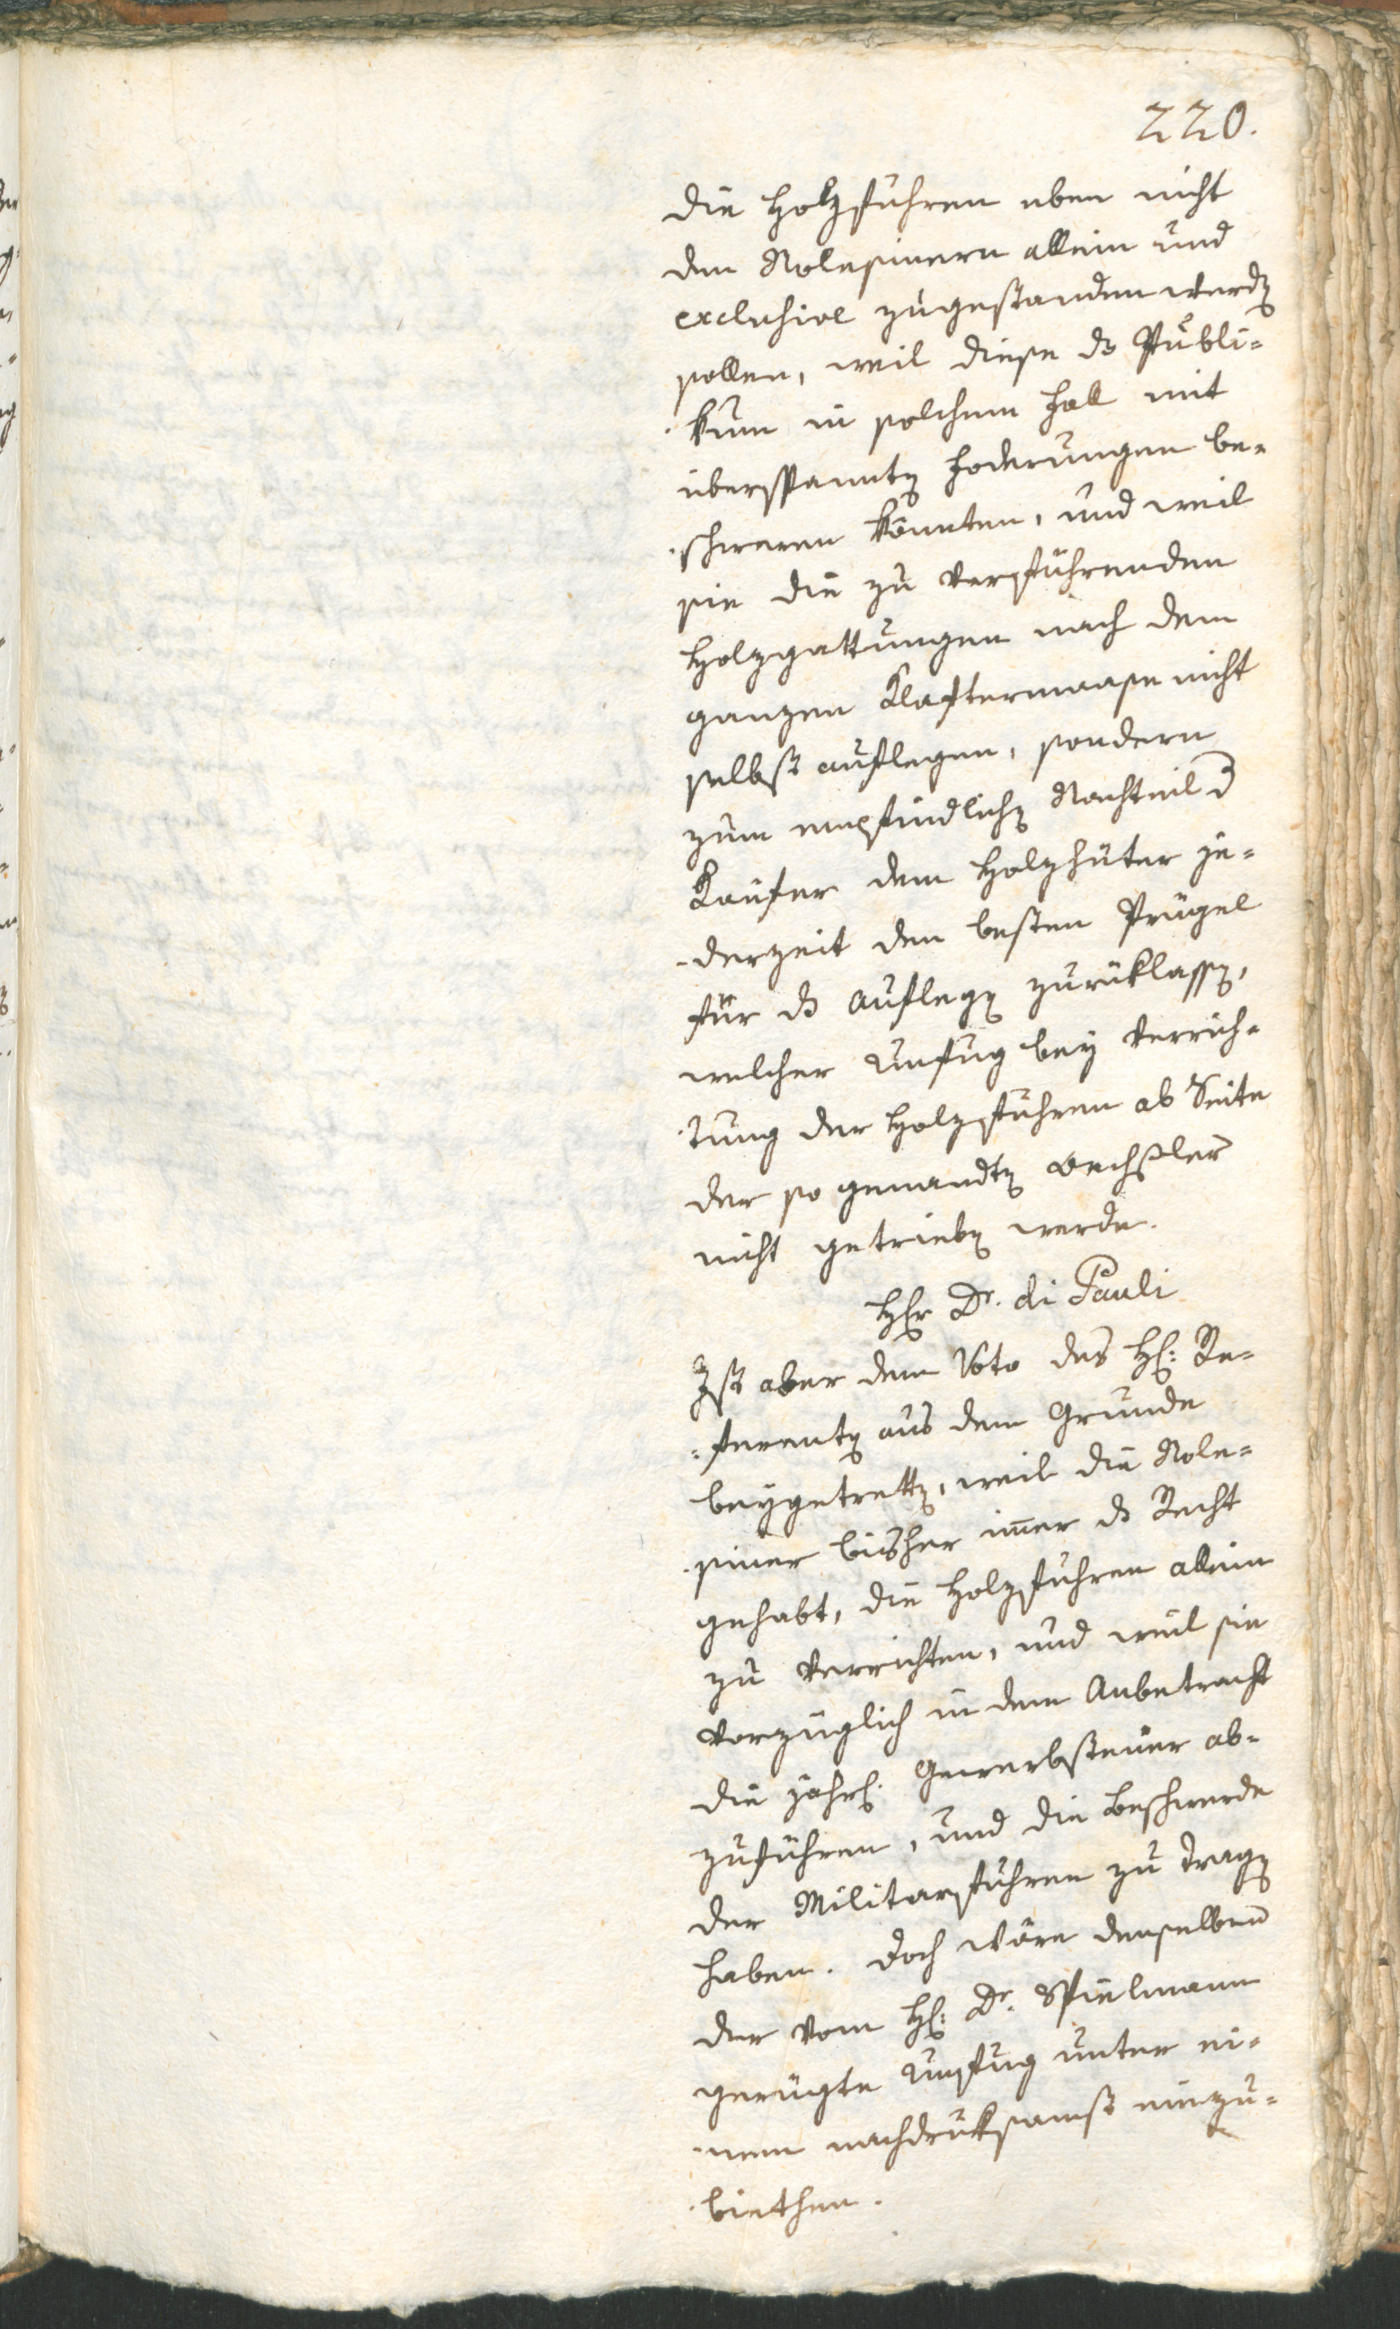 220.
die Holzfuhren eben nicht
den Rolesinern allein und
exclusive zugestanden werden
sollen, weil diese ds Publi-
kum in solchem Fall mit
überspannten Foderungen be-
schweren könnten, und weil
sie die zu verführenden
Holzgattungen nach dem
ganzen Klaftermaase nicht
selbst auflegen, sondern
zum empfindlichen Nachteil d
Käufer dem Holzhüter je-
derzeit den besten Prügel
für ds Auflegen zurüklassen,
welcher Unfug bey Verrich-
tung der Holzfuhren ab Seite
der so genandten Wechsler
nicht getrieben werde.
Hr Dr. di Pauli
Ist aber dem Voto des H: Re-
ferenten aus dem Grunde
beygetretten, weil die Role-
siner bisher immer ds Recht
gehabt, die Holzfuhren allein
zu verrichten, und weil sie
vorzüglich in dem Anbetracht
die jährl. Gewerbsteuer ab-
zuführen, und die Beschwerde
der Militarfuhren zu tragen
haben. Doch wäre denselben
der vom H: Dr. Spielmann
gerügte Unfug unter ei-
nem nachdruksamst einzu-
biethen.